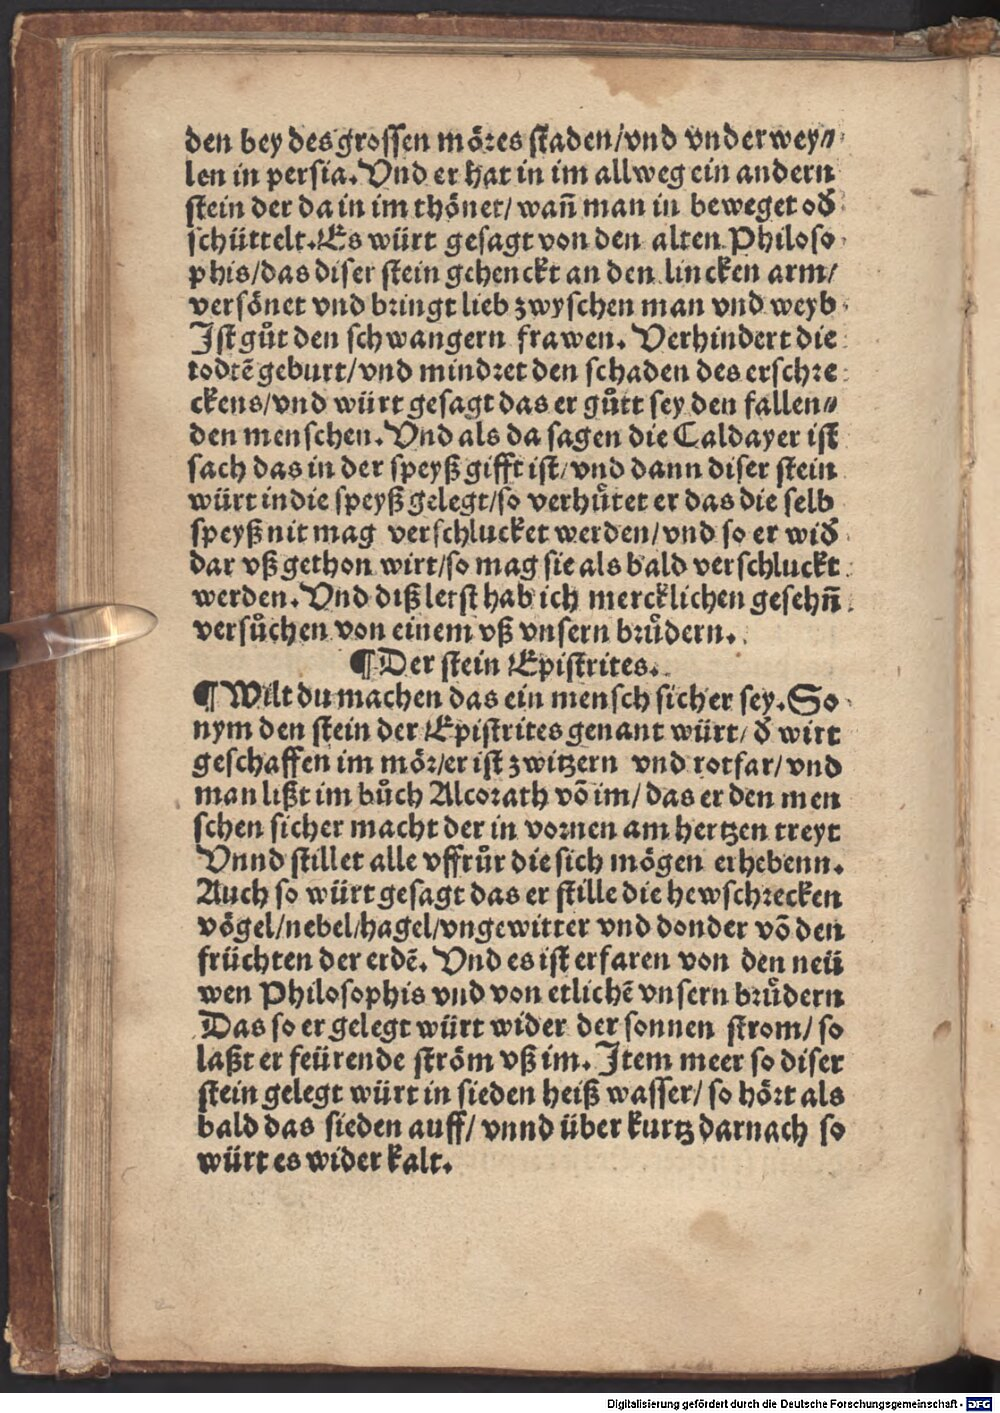 den bey des grossen möres staden/vnd vnderwey⸗
len in persia. Vnd er hat in im allweg ein andern
stein der da in im thönet/ wañ man in beweget oð
schüttelt. Es würt gesagt von den alten Philoso
phis/das diser stein gehenckt an den lincken arm/
versönet vnd bringt lieb zwyschen man vnd weyb
Ist gůt den schwangern frawen. Verhindert die
todtē geburt/vnd mindret den schaden des erschre
ckens/vnd würt gesagt das er gůtt sey den fallen⸗
den menschen. Vnd als da sagen die Caldayer ist
sach das in der speyß gifft ist/vnd dann diser stein
würt in die speyß gelegt/so verhůtet er das die selb
speyß nit mag verschlucket werden/vnd so er wið
dar vß gethon wirt/so mag sie als bald verschluckt
werden. Vnd diß letst hab ich mercklichen gesehñ
versůchen von einem vß vnsern brůdern.
¶ Der stein Epistrites.
¶ Wilt du machen das ein mensch sicher sey. So
nym den stein der Epistrites genant würt/ ð wirt
geschaffen im mör/er ist zwitzern vnd rotfar/vnd
man lißt im bůch Alcorath võ im/ das er den men
schen sicher macht der in vornen am hertzen treyt
Vnnd stillet alle vffrůr die sich mögen erhebenn.
Auch so würt gesagt das er stille die hewschrecken
vögel/nebel/hagel/vngewitter vnd donder võ den
früchten der erdē. Vnd es ist erfaren von den neü
wen Philosophis vnd von etlichē vnsern brůdern
Das so er gelegt würt wider der sonnen strom/ so
laßt er feürende ström vß im. Item meer so diser
stein gelegt würt in sieden heiß wasser/ so hört als
bald das sieden auff/ vnnd über kurtz darnach so
würt es wider kalt.
Digitalisierung gefördert durch die Deutsche Forschungsgemeinschaft - DFG